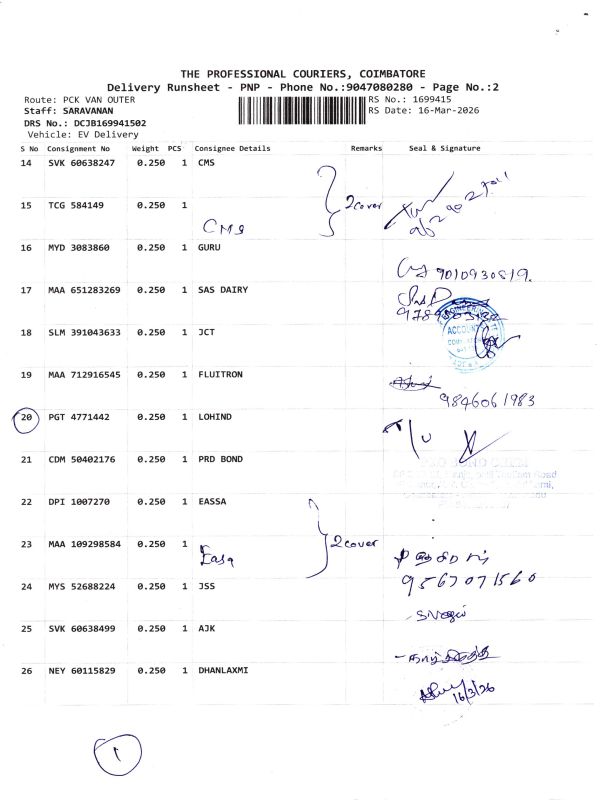 THE PROFESSIONAL COURIERS, COIMBATORE
Delivery Runsheet - PNP - Phone No.:9047080280 - Page No.:2
Route: PCK VAN OUTER
RS No.: 1699415
Staff: SARAVANAN
RS Date: 16-Mar-2026
DRS No.: DCJB169941502
Vehicle: EV Delivery
S No Consignment No Weight PCS Consignee Details Remarks Seal & Signature
14 SVK 60638247 0.250 1 CMS
2 cover
15 TCG 584149 0.250 1
CMS
16 MYD 3083860 0.250 1 GURU
9010930819.
17 MAA 651283269 0.250 1 SAS DAIRY
18 SLM 391043633 0.250 1 JCT
ACCOUNT
19 MAA 712916545 0.250 1 FLUITRON
9846061983
20 PGT 4771442 0.250 1 LOHIND
21 CDM 50402176 0.250 1 PRD BOND
22 DPI 1007270 0.250 1 EASSA
2 cover
23 MAA 109298584 0.250 1
Easa
9567071560
24 MYS 52688224 0.250 1 JSS
25 SVK 60638499 0.250 1 AJK
26 NEY 60115829 0.250 1 DHANLAXMI
16/3/26
1